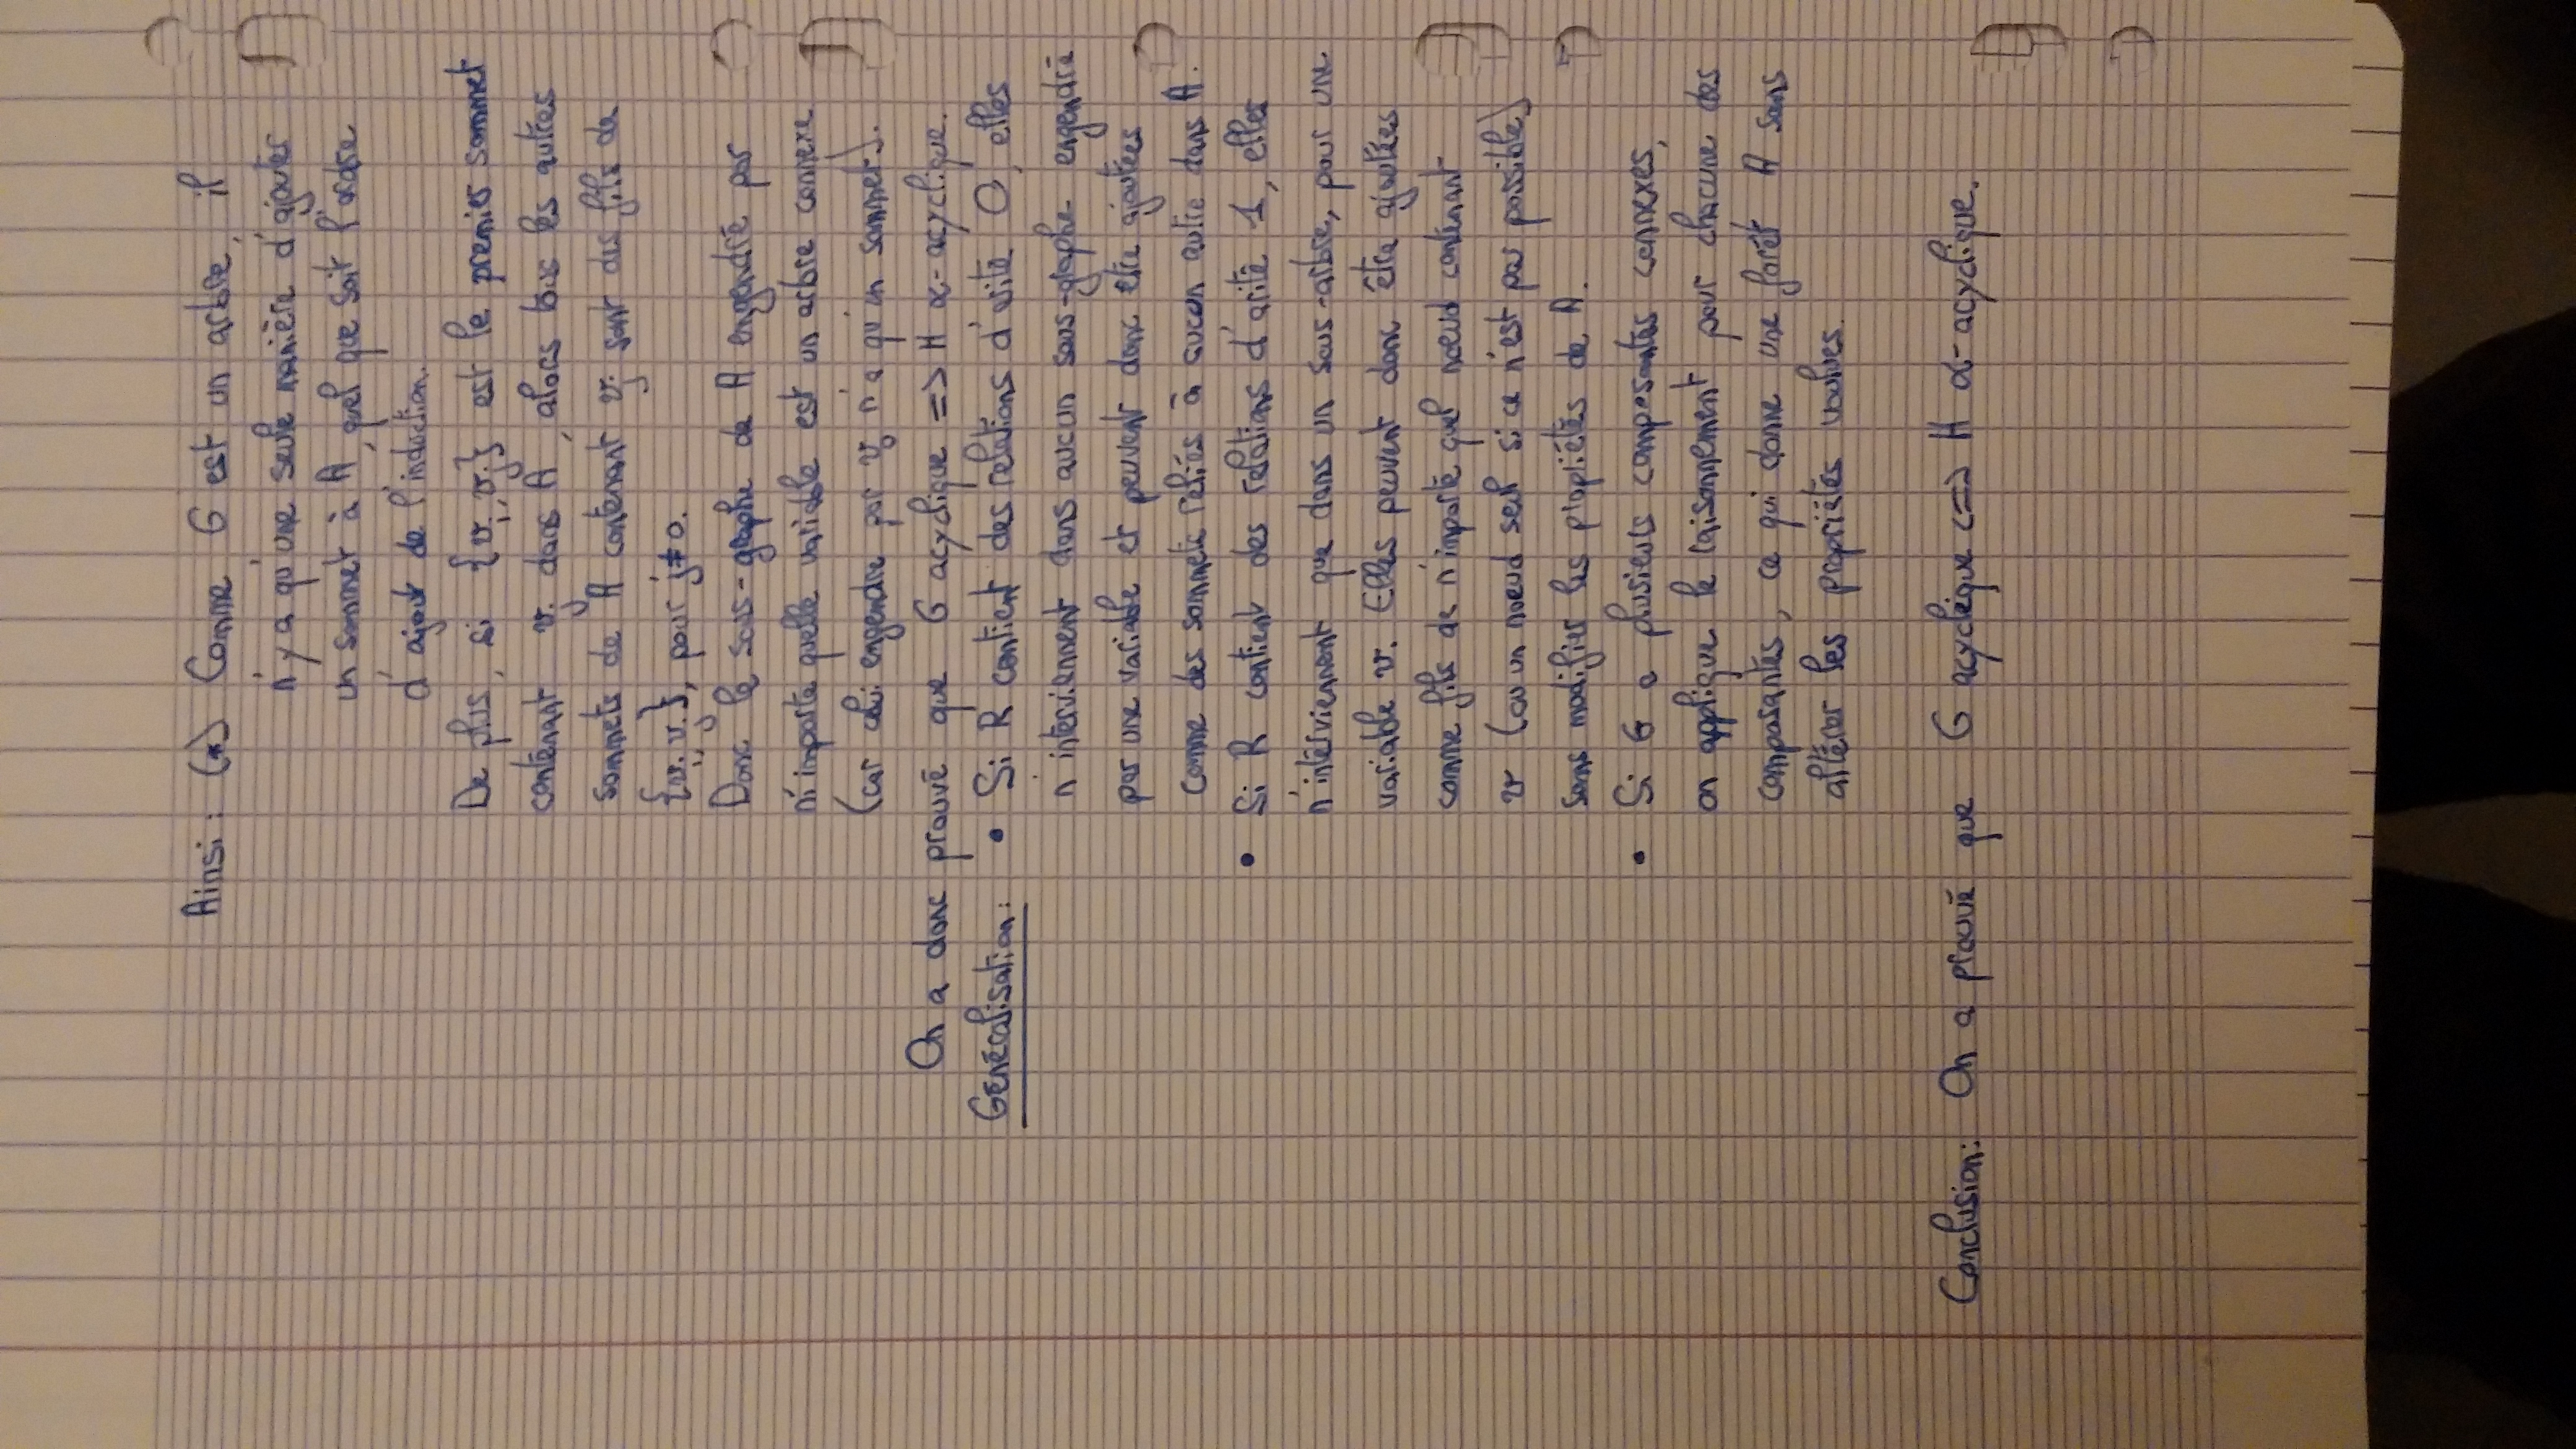 Ainsi : (*) Comme G est un arbre, il
n'y a qu'une seule manière d'ajouter
un sommet à A, quel que soit l'ordre
d'ajout de l'induction.
De plus, si {vi, vj} est le premier sommet
contenant vj dans A, alors tous les autres
sommets de A contenant vj sont des fils de
{vi, vj}, pour j≠0.
Donc le sous-graphe de A engendré par
n'importe quelle variable est un arbre connexe
(car celui engendré par v0 n'a qu'un sommet).
On a donc prouvé que G acyclique => H α-acyclique.
Généralisation : • Si R contient des relations d'arité 0, elles
n'interviennent dans aucun sous-graphe engendré
par une variable et peuvent donc être ajoutées
comme des sommets reliés à aucun autre dans A.
• Si R contient des relations d'arité 1, elles
n'interviennent que dans un sous-arbre, pour une
variable v. Elles peuvent donc être ajoutées
comme fils de n'importe quel noeud contenant
v (ou un noeud seul si ce n'est pas possible)
sans modifier les propriétés de A.
• Si G a plusieurs composantes connexes,
on applique le raisonnement pour chacune des
composantes, ce qui donne une forêt A sans
altérer les propriétés voulues.
Conclusion : On a prouvé que G acyclique <=> H α-acyclique.